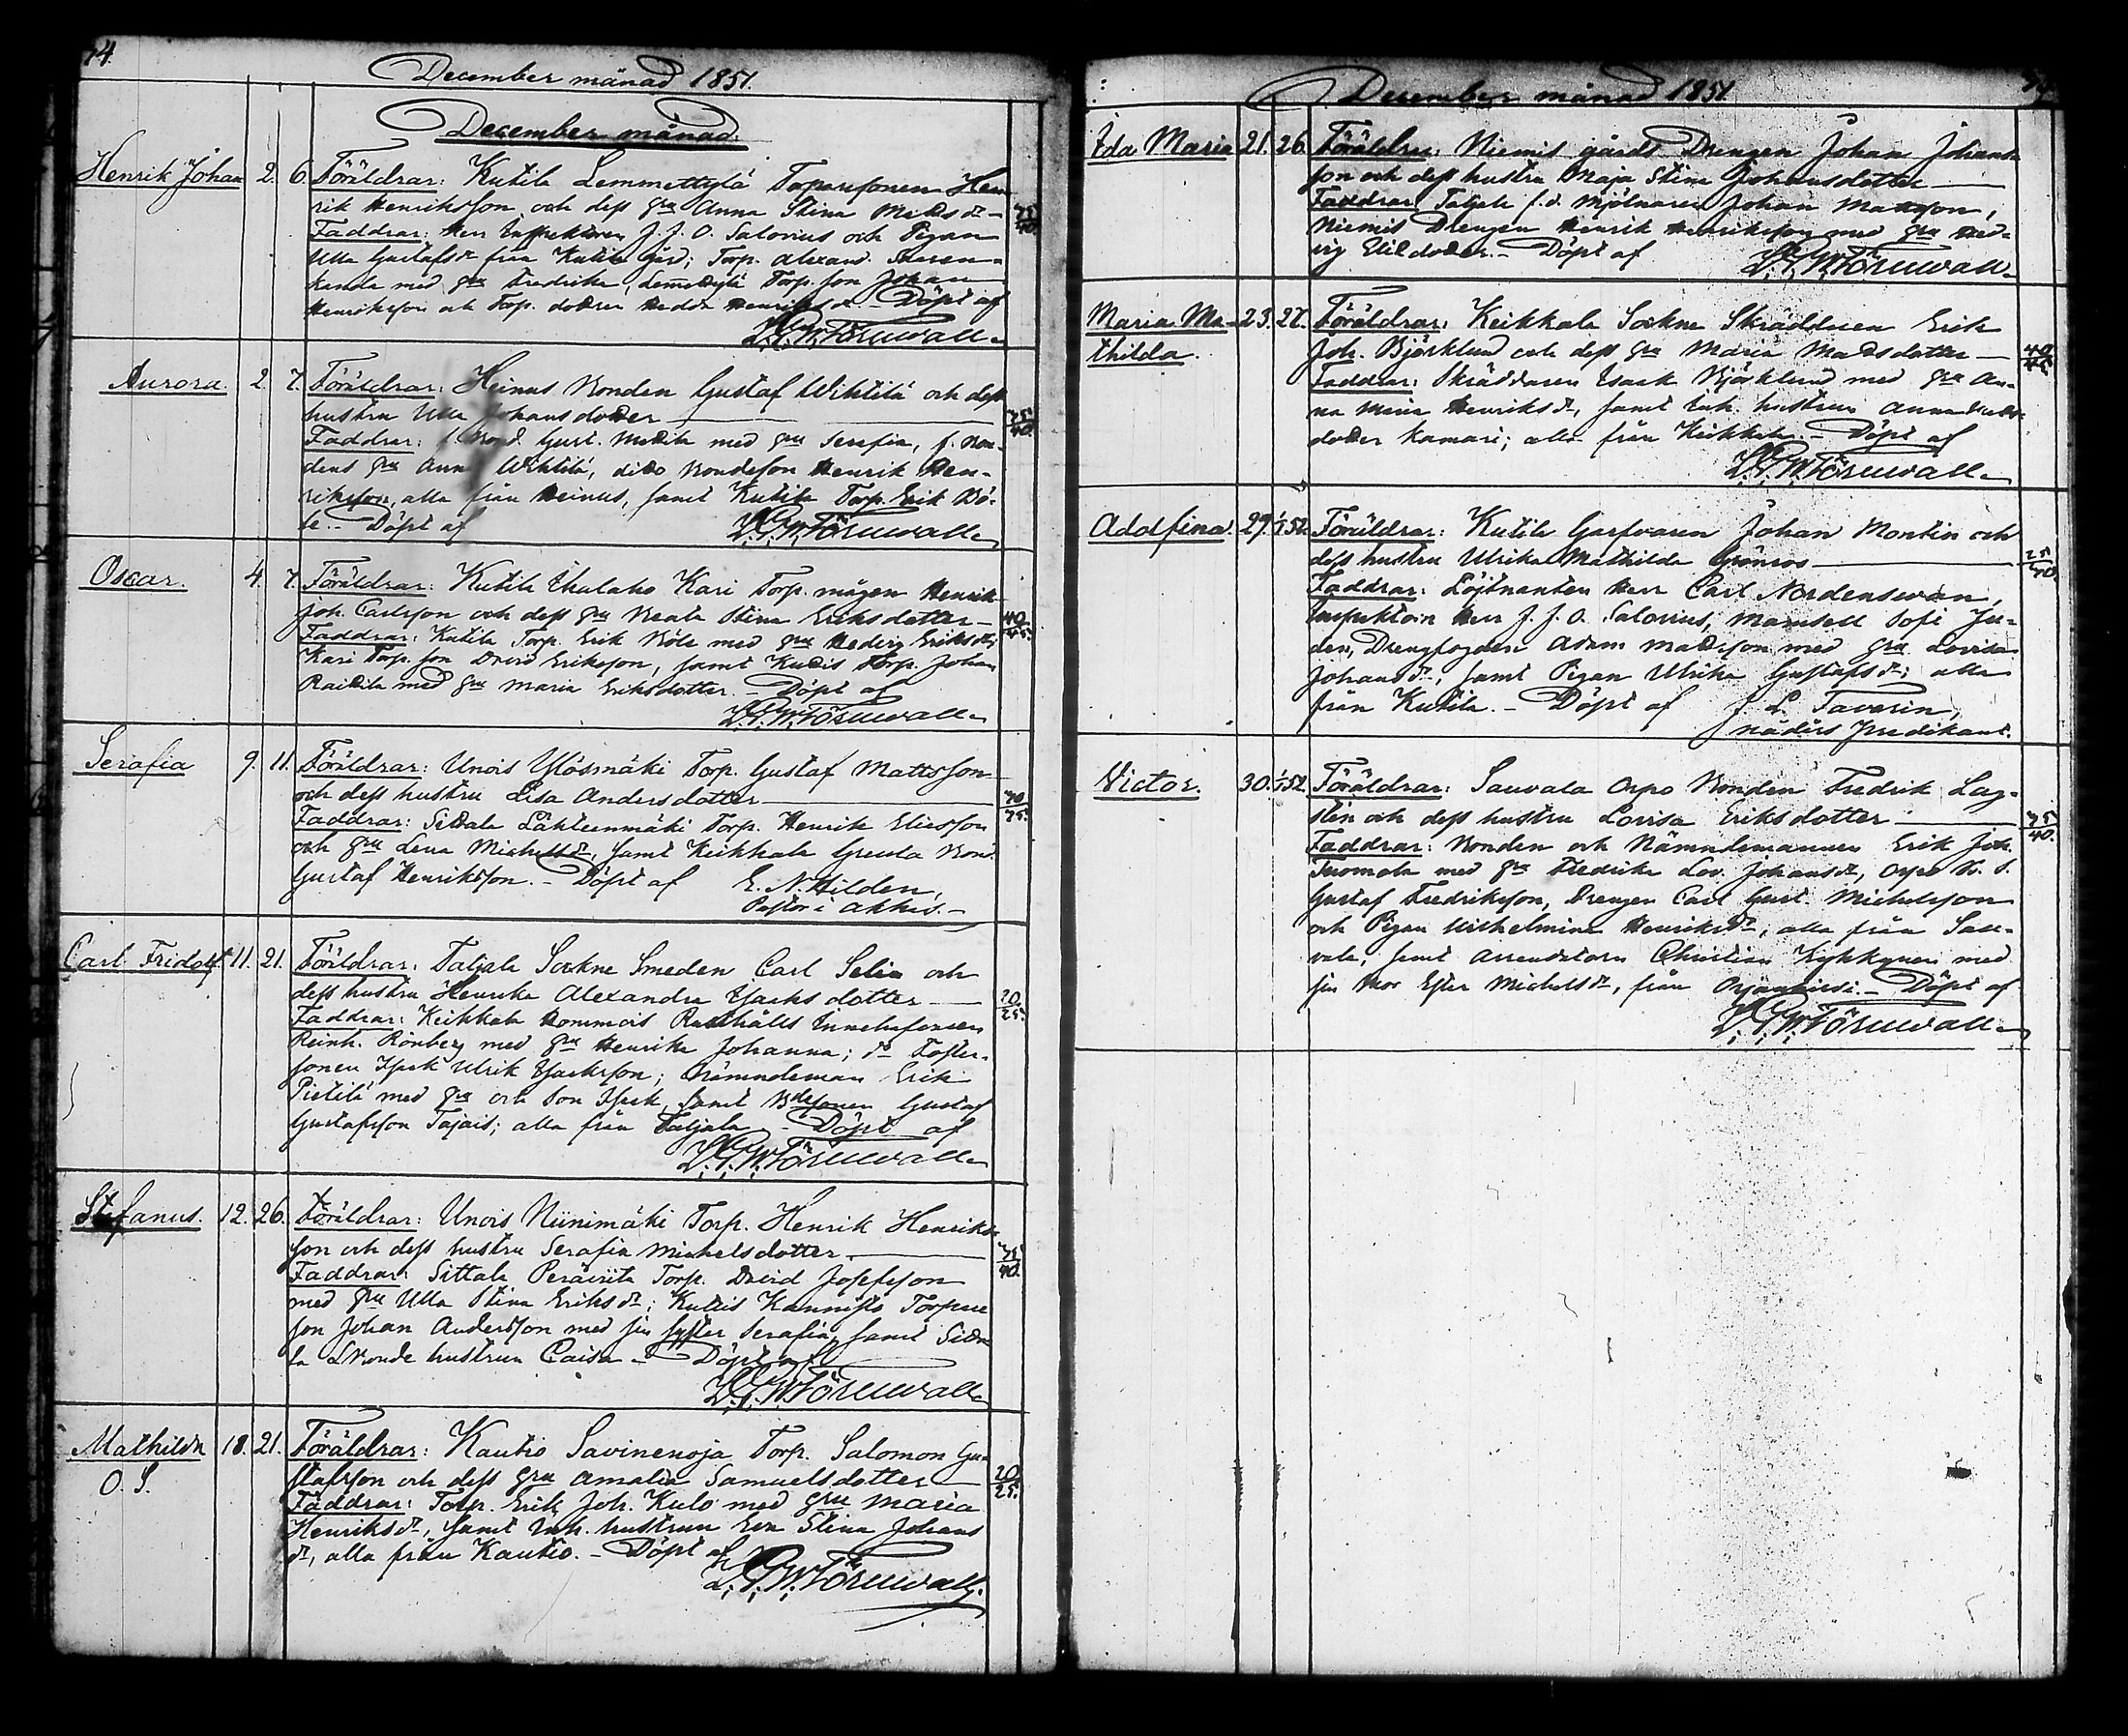 74.
December månad 1851.
December månad.
Henrik Johan 2. 6. Föräldrar: Kutila Lemmettylä Torparesonen Hen
rik Henriksson och dess hu Anna Stina Mattsdr
Faddrar: Herr Inspektoren J. J. O. Salovius och Pigan
Ulla Gustafsdr från Kutila Gård; Torp. Alexand.
med hu Fredrika, Lemettylä Torp. son Johan
Henriksson och Torp. dottren Hedda Henriksdr. Döpt af
Törnwall
Aurora. 2. 7. Föräldrar: Heinus Bonden Gustaf Wihtilä och dess
hustru Ulla Johansdotter 35/40.
Faddrar: Gust. Mattila med hu Serafia, f. Bon-
dens hu Anna Wihtilä, dito Bondeson Henrik Hen-
riksson, alla från Heinus, samt Kutila Torp. Erik Bö-
le. Döpt af Törnwall
Oscar. 4. 7. Föräldrar: Kutila Uhalaho Kari Torp. mågen Henrik
Joh. Carlsson och dess hu Beata Stina Eriksdotter 40/45.
Faddrar: Kutila Torp. Erik Böle med hu Hedvig Eriksdr,
Kari Torp. son David Eriksson, samt Torp. Johan
Raitila med hu Maria Eriksdotter. Döpt af
Törnwall
Serafia 9. 11. Föräldrar: Unois Ylösmäki Torp. Gustaf Mattsson
och dess hustru Lisa Andersdotter 70/75.
Faddrar: Sittala Lähteenmäki Torp. Henrik Eliasson
och hu Lena Michelsdr, samt Keikkala Greula Bond.
Gustaf Henriksson. Döpt af E. N. Hilden,
Pastor i Akkas.
Carl Fridolf 11. 21. Föräldrar: Taljala Sockne Smeden Carl Selin och
dess hustru Henrika Alexandra Isacksdotter 20/25.
Faddrar: Keikkala Hommois Rusthålls Innehafvaren
Reinh. Rönberg med hu Henrika Johanna; do Foster-
sonen Isack Ulrik Isacksson; Nämndeman Erik
Pietilä med hu och Son Isack, samt Bdesonen Gustaf
Gustafsson Tajais; alla från Taljala. Döpt af
Törnwall
Stefanus. 12. 26. Föräldrar: Unois Niinimäki Torp. Henrik Henriks-
son och dess hustru Serafia Michelsdotter. 35/40.
Faddrar: Sittala Torp. David Josefsson
med hu Ulla Stina Eriksdr; Kannisto Torpare
son Johan Andersson med sin syster Serafia, samt Sitta-
la Bonde hustrun Caisa. Döpt af
Törnwall
Mathilda 18. 21. Föräldrar: Kautio Savinenoja Torp. Salomon Gu-
O. S. stafsson och dess hu Amalia Samuelsdotter 20/25.
Faddrar: Torp. Erik Joh. Kulo med hu Maria
Henriksdr, samt Inh. hustrun Eva Stina Johans
dr, alla från Kautio. Döpt af
Törnwall.
December månad 1851.
Ida Maria 21. 26. Föräldrar: Niemis gårds Drengen Johan Johans
son och dess hustru Maja Stina Johansdotter
Faddrar: Taljala f.d. Mjölnaren Johan Mattsson,
Niemis Drengen Henrik Henriksson med hu Hed-
vig Elisdotter. Döpt af Törnwall
Maria Ma- 23. 27. Föräldrar: Keikkala Sockne Skräddaren Erik
thilda. Joh. Björklund och dess hu Maria Mattsdotter 40/45.
Faddrar: Skräddaren Isack Björklund med hu An-
na Maria Henriksdr, samt Inh. hustrun Anna Matts-
dotter Kamari; alla från Keikkala. Döpt af
Törnwall
Adolfina. 29. 1/1 52. Föräldrar: Kutila Garfvaren Johan Montin och
dess hustru Ulrika Mathilda Grönroos 35/40.
Faddrar: Löjtnanten Herr Carl Nordenswan,
Inspektorn Herr J. J. O. Salovius, Mamsell Sofi Ju-
den, Drengfogden Adam Mattsson med hu Lovisa
Johansdr, samt Pigan Ulrika Gustafsdr; alla
från Kutila. Döpt af J. L. Taverin,
nådårs Predikant.
Victor. 30. 1/1 52. Föräldrar: Sauvala Orpo Bonden Fredrik Lag-
sten och dess hustru Lovisa Eriksdotter 35/40.
Faddrar: Bonden och Nämndemannen Erik Joh.
Tuomola med hu Fredrika Lov. Johansdr, Orpo B. S.
Gustaf Fredriksson, Drengen Carl Gust. Michelsson
och Pigan Wilhelmina Henriksdr, alla från Sau-
vala, samt Arrendatorn Christian Kykkynen med
sin Mor Ester Michelsdr, från. Döpt af
Törnwall